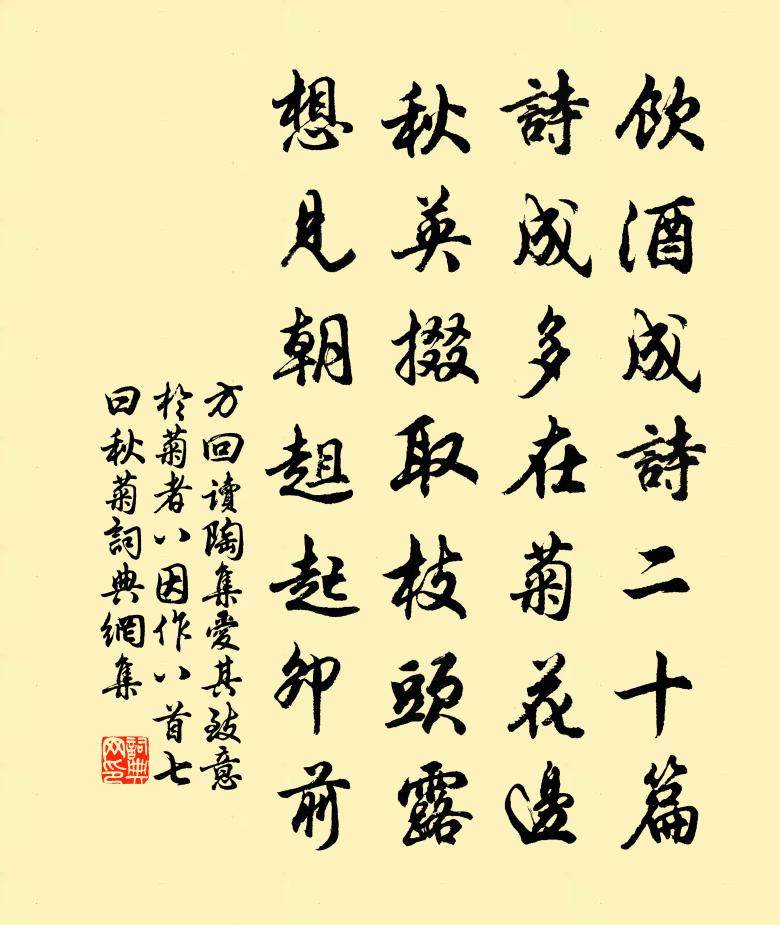 飲酒成詩二十篇
詩成多在菊花邊
秋英掇取枝頭露
想見朝趄起卯前
方回讀陶集愛其致意
於菊者八因作八首七
曰秋菊詞典網集
詞典
网印